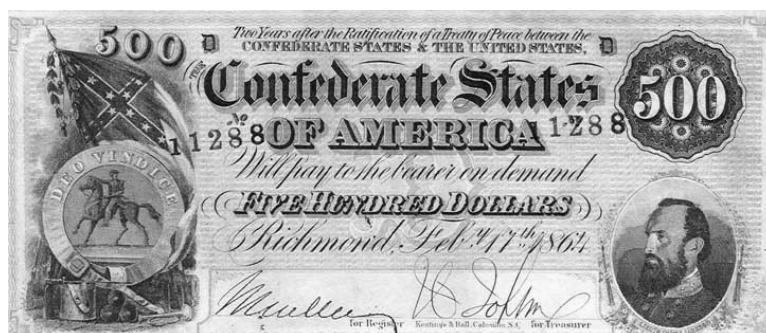 500 D Two Years after the Ratification of a Treaty of Peace between the D
CONFEDERATE STATES & THE UNITED STATES,
THE
Confederate States
500
No 11288 OF AMERICA No 11288
DEO VINDICE
Will pay to the bearer on demand
FIVE HUNDRED DOLLARS
Richmond, Feby 17th 1864
for Register Keatinge & Ball, Columbia, S.C. for Treasurer